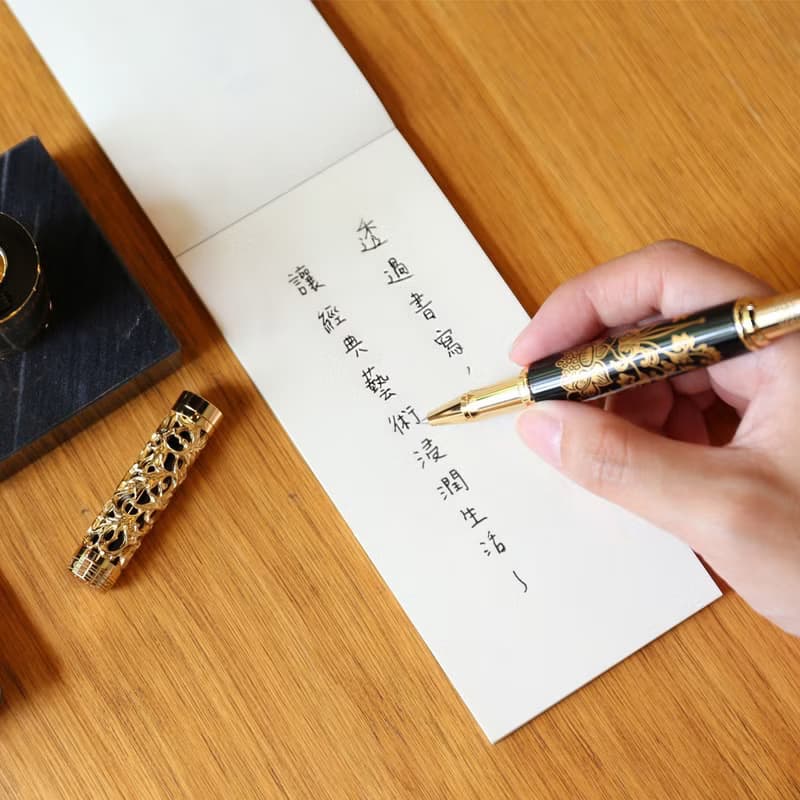 透過書寫，
讓經典藝術浸潤生活～